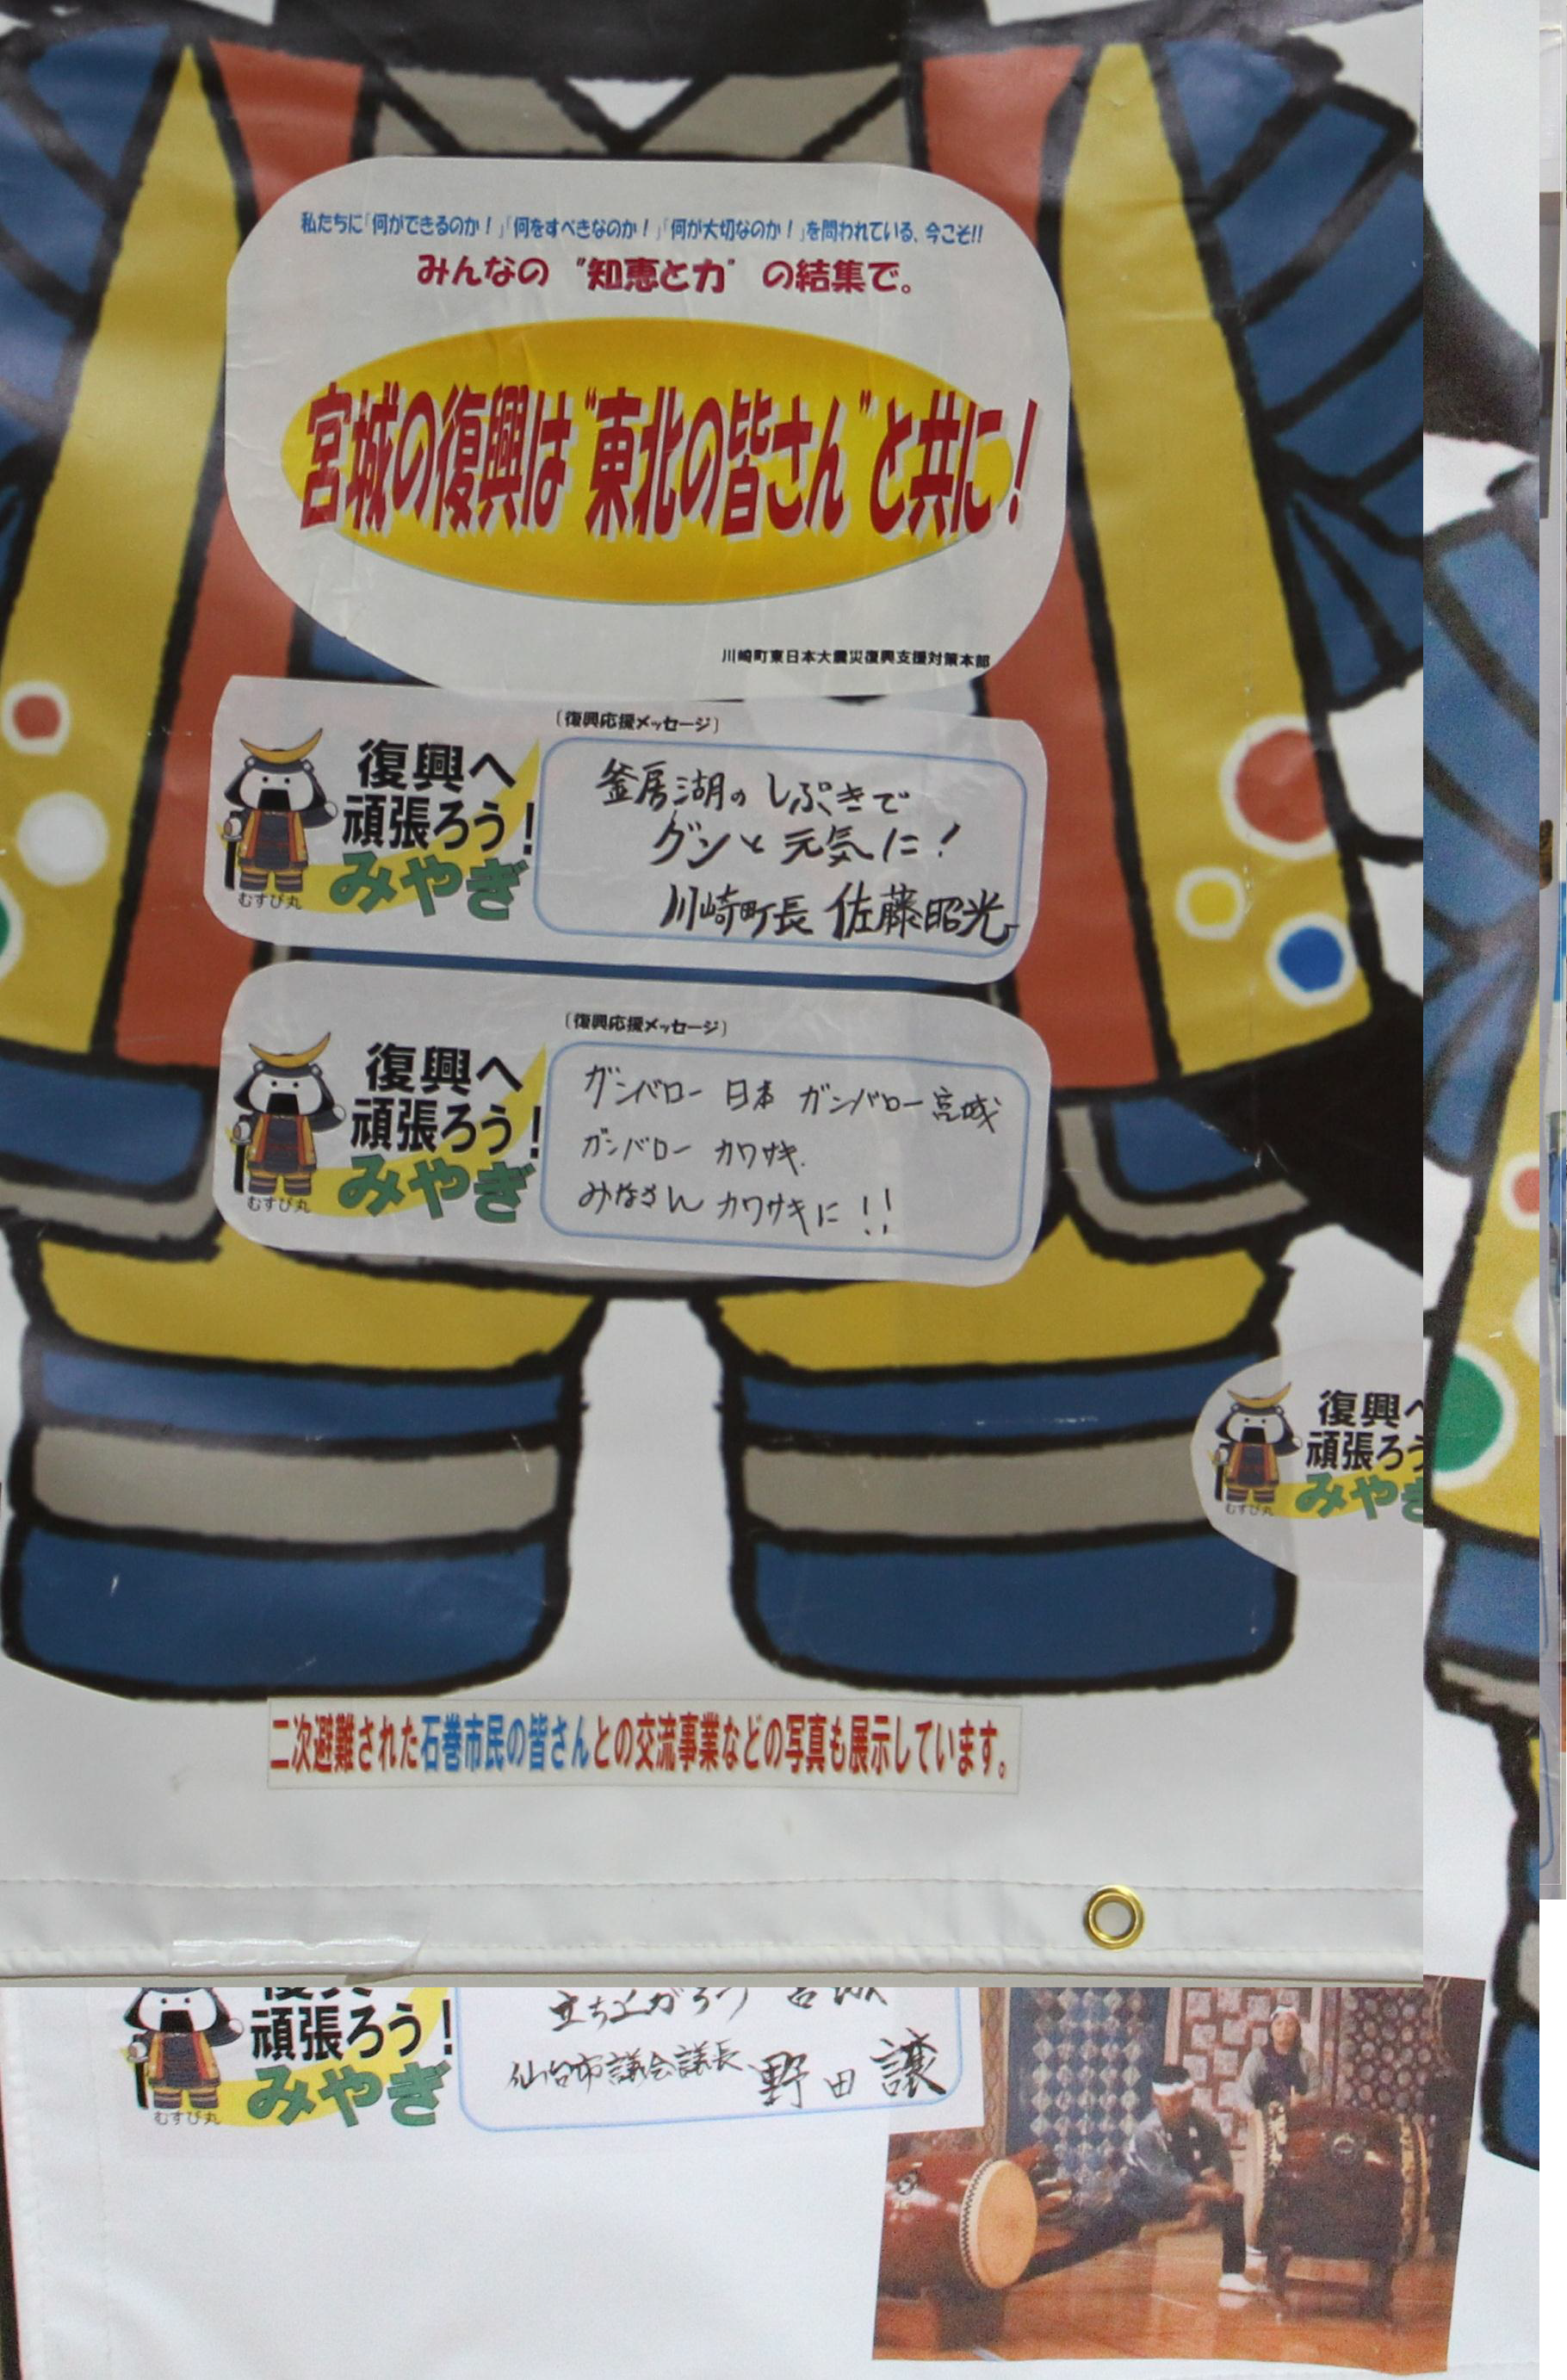 私たちに「何ができるのか！」「何をすべきなのか！」「何が大切なのか！」を問われている、今こそ!!
みんなの“知恵と力”の結集で。
宮城の復興は“東北の皆さん”と共に！
川崎町東日本大震災復興支援対策本部
〔復興応援メッセージ〕
復興へ
頑張ろう！
みやぎ
むすび丸
釜房湖のしぶきで
グンと元気に！
川崎町長 佐藤昭光
〔復興応援メッセージ〕
復興へ
頑張ろう！
みやぎ
むすび丸
ガンバロー 日本 ガンバロー宮城
ガンバロー カワサキ.
みなさん カワサキに!!
復興へ
頑張ろう
みやぎ
むすび丸
二次避難された石巻市民の皆さんとの交流事業などの写真も展示しています。
頑張ろう！
みやぎ
むすび丸
立ち上がろう 宮城
仙台市議会議長 野田 譲